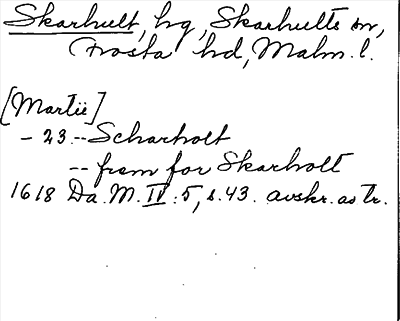 Skarhult, hg, Skarhults sn,
Frosta hd, Malm. l.
[Martii]
- 23 -- Scharholt
-- fram for Skarholt
1618 Da. M. IV:5, s. 43. avskr. as tr.